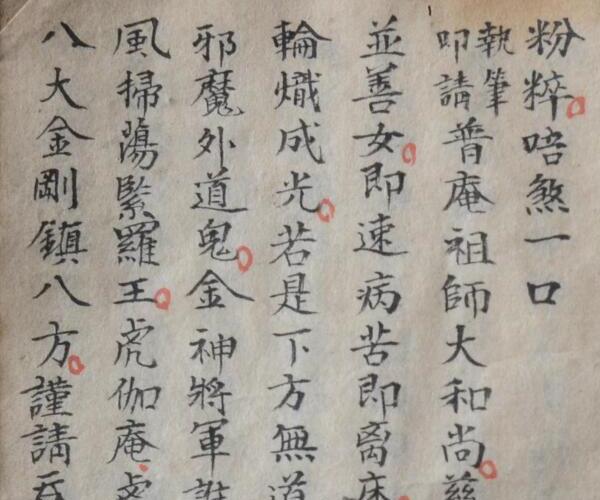 粉粹唔煞一口
執筆
叩請普庵祖師大和尚
並善女即速病苦即离床
輪熾成光若是下方無道
邪魔外道鬼金神將軍
風掃蕩緊羅王虎伽庵
八大金剛鎮八方謹請